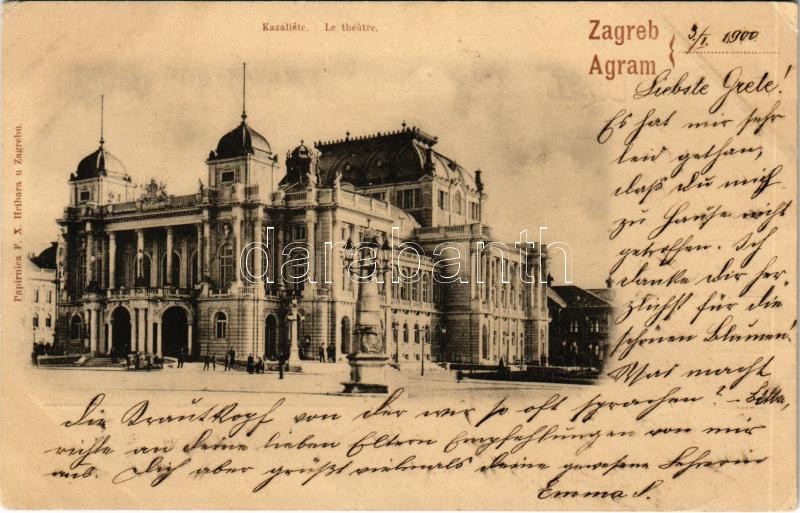 Kazalište. Le théâtre.
Zagreb
Agram
3/I. 1900
Papirnica F. X. Hribara u Zagrebu.
darabanth
Liebste Grete!
Es hat mir sehr
leid gethan,
daß du mich
zu Hause nicht
getroffen. Ich
danke dir her-
zlichst für die
schönen Blumen!
Was macht
die Krautkopf von der wir so oft sprachen? – Bitte,
richte an deine lieben Eltern Empfehlungen von mir
aus. Dich aber grüßt vielmals deine gewesene Lehrerin
Emma S.